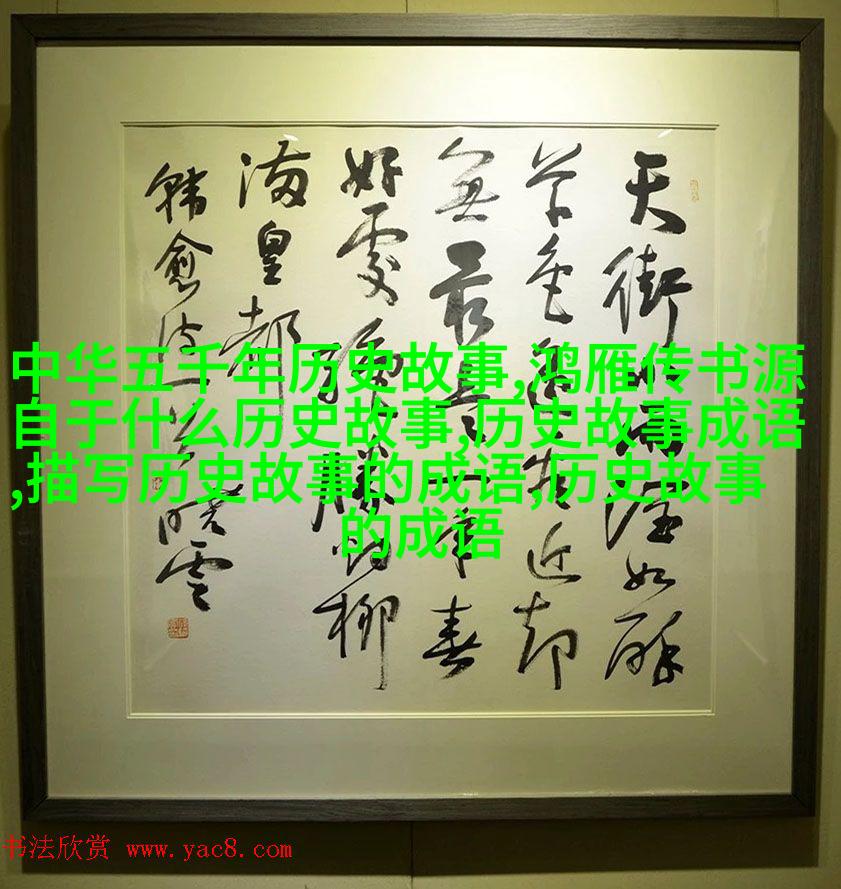 天街小雨潤如酥
草色遙看近却
無最是一年春
好處絕勝烟柳
滿皇都
韓愈詩一首 曉雲
中华五千年历史故事,鸿雁传书源
自于什么历史故事,历史故事成语
,描写历史故事的成语,历史故事
的成语
书法欣赏 www.yac8.com